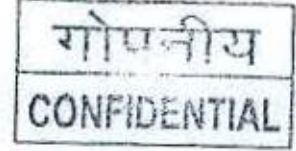 गोपनीय
CONFIDENTIAL